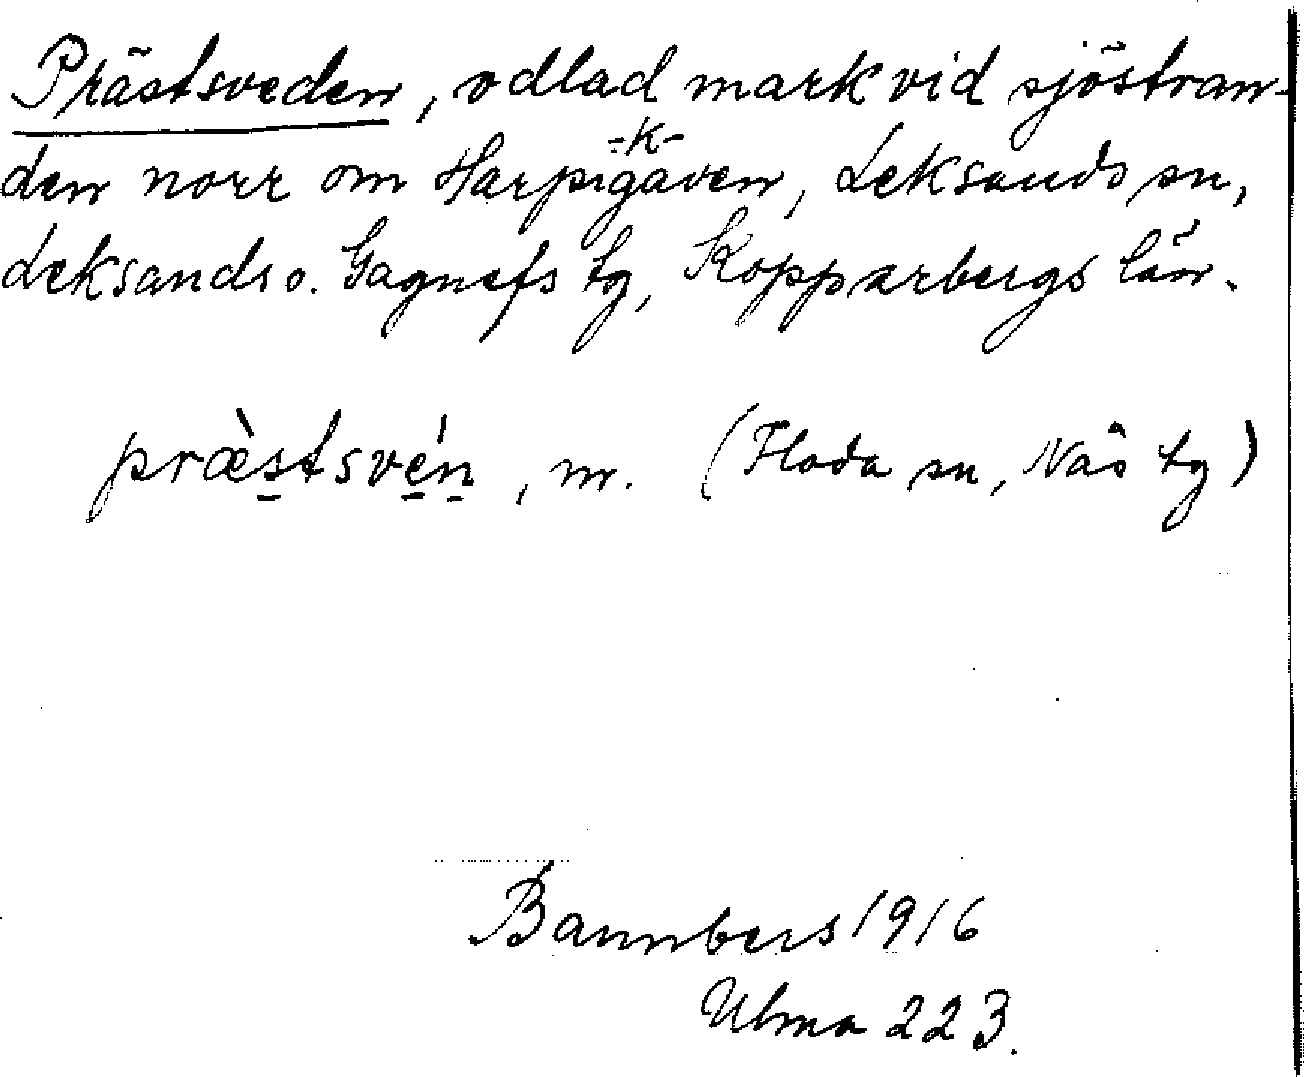 Prästsveden, odlad mark vid sjöstran-
-k-
den norr om Harpigäven, Leksands sn,
Leksands o. Gagnefs tg, Kopparbergs län.
præ̀stsvén, m. (Floda sn, Nås tg)
Bannbers 1916
Ulma 223.